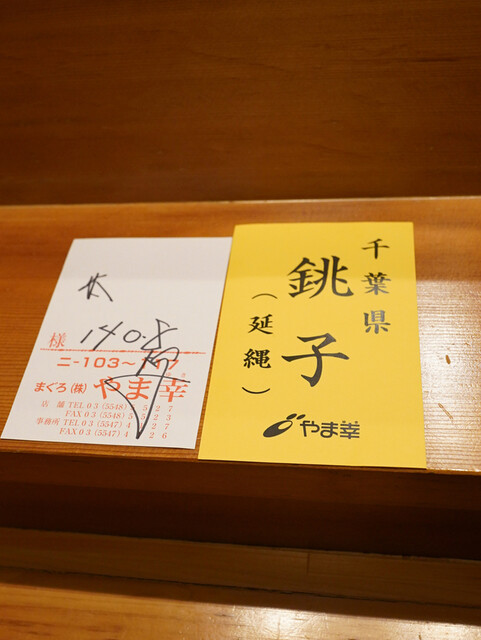 様 140.8
ニ-103~
まぐろ(株)やま幸
店舗 TEL 03 (5548)
FAX 03 (5548)
事務所 TEL 03 (5547)
FAX 03 (5547)
千葉県
銚子
(延縄)
やま幸